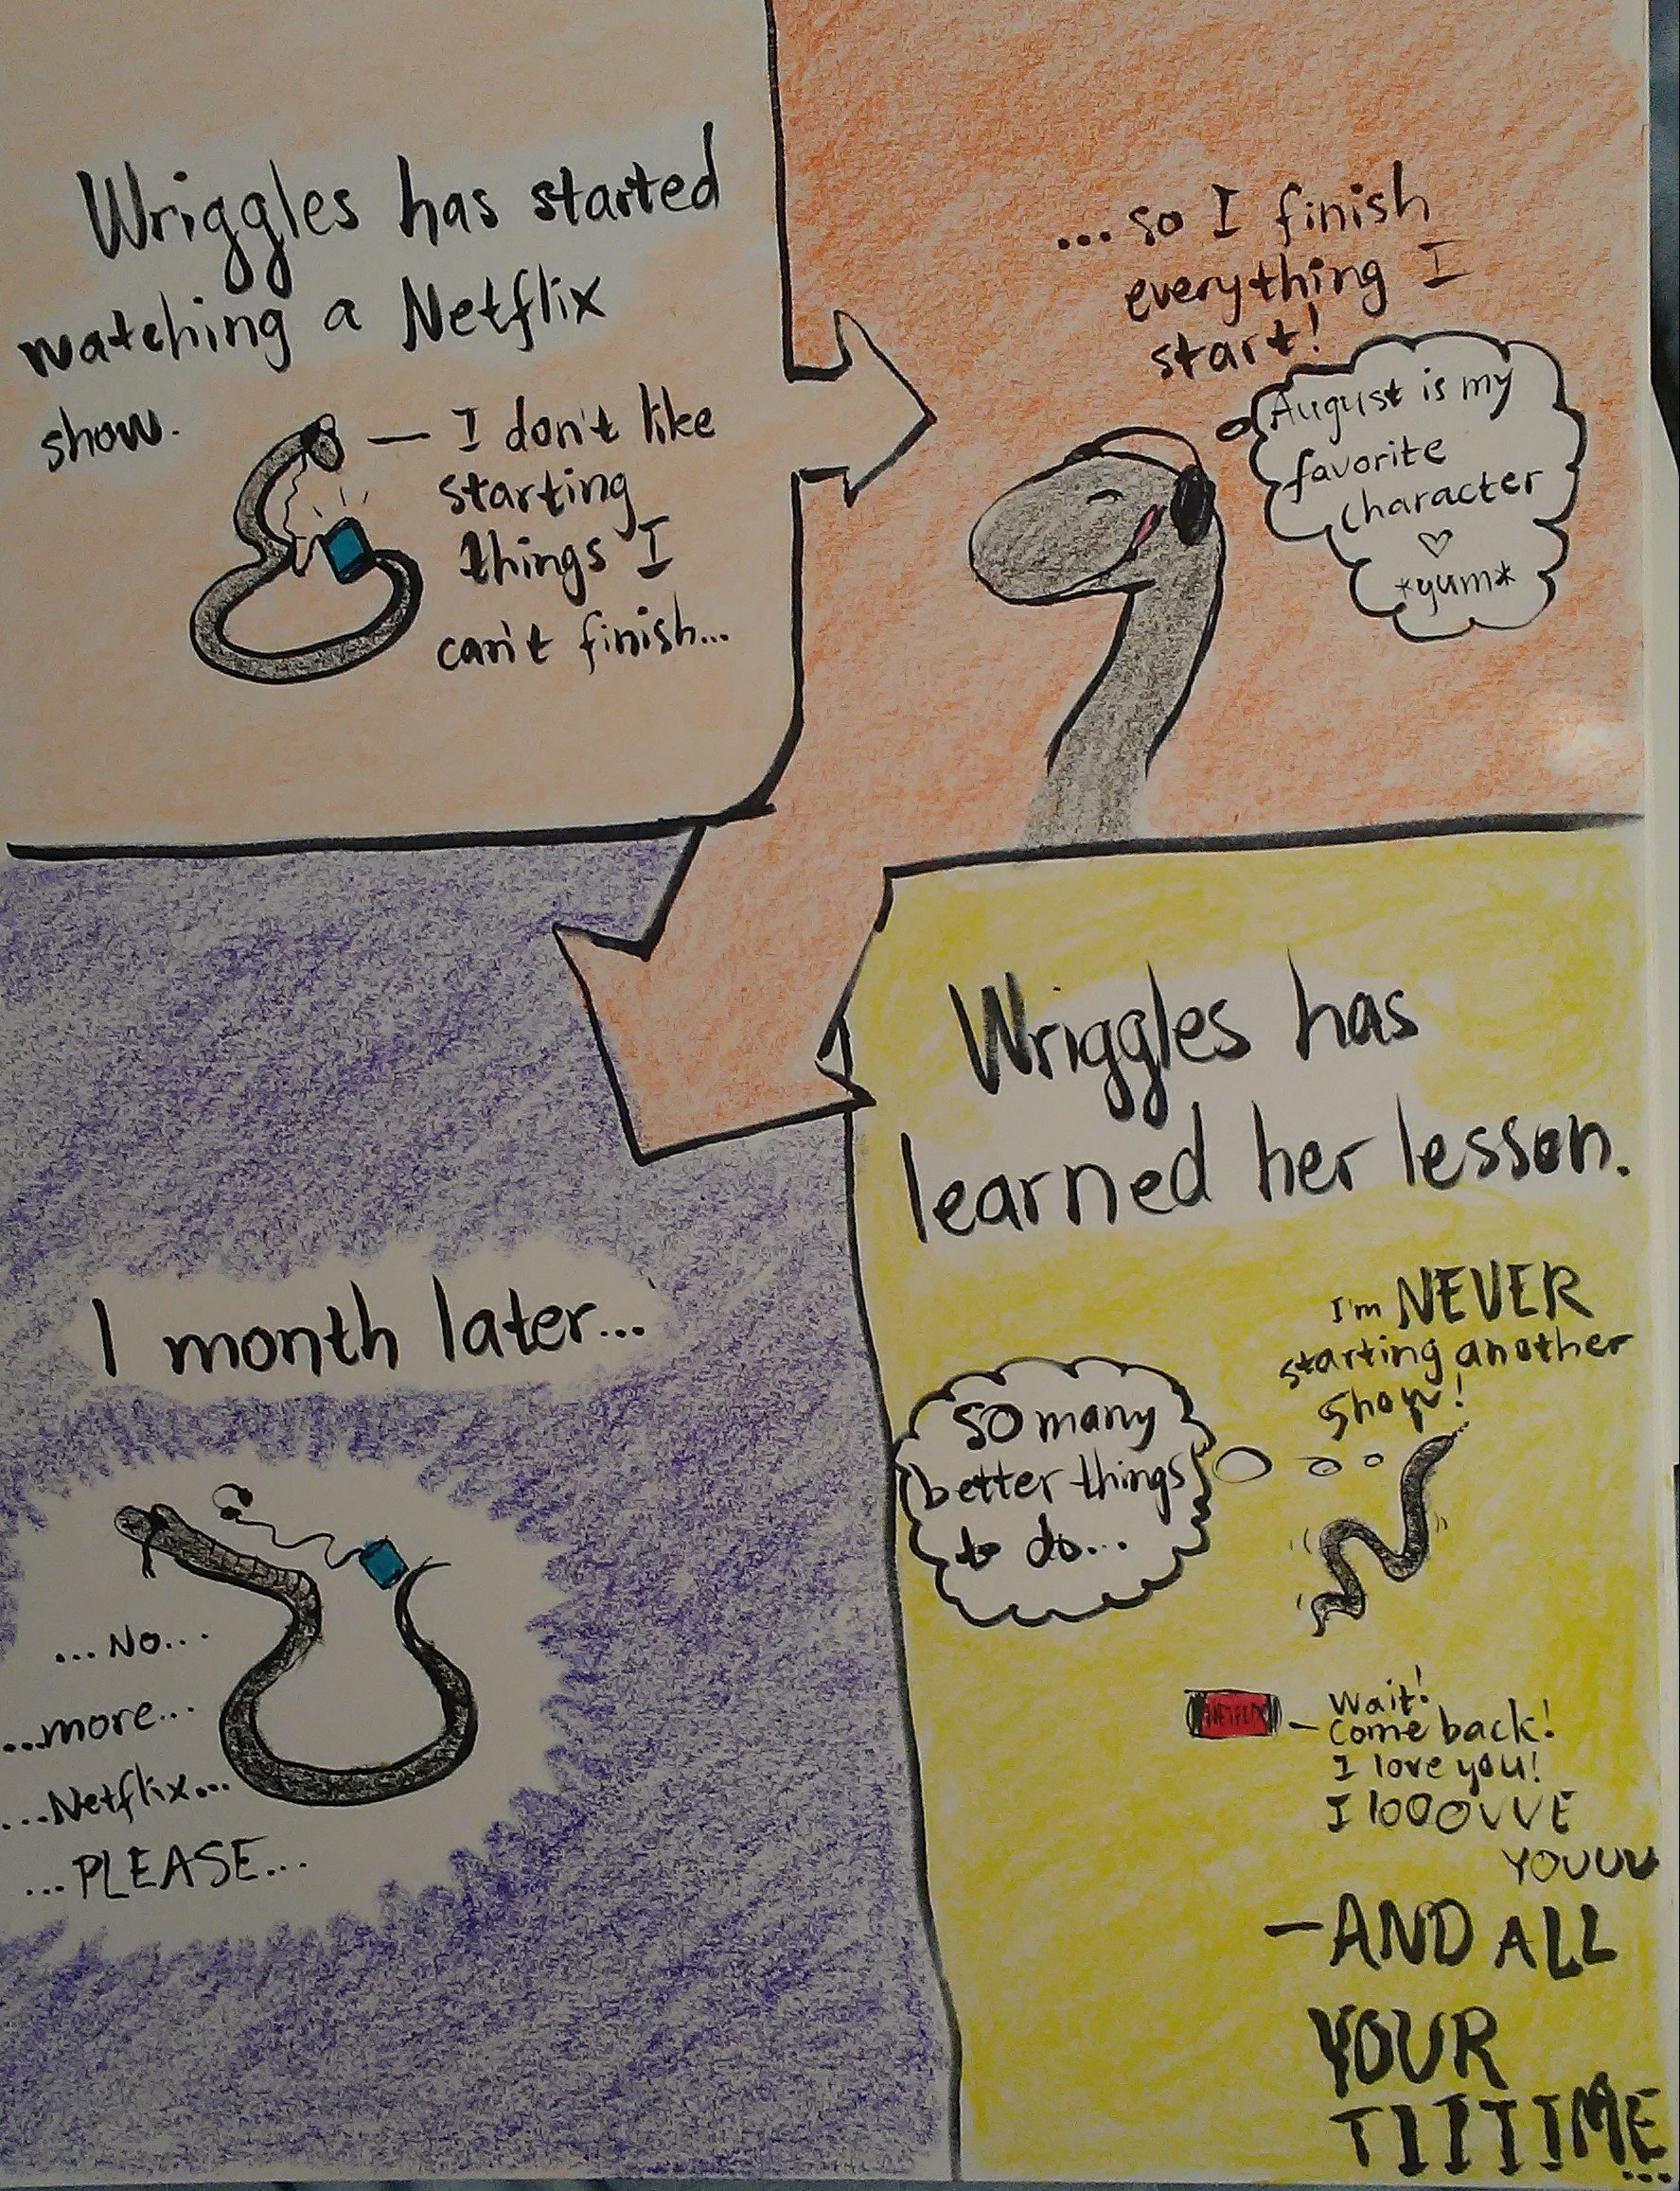 Wriggles has started
watching a Netflix
show.
— I don't like
starting
things I
can't finish...
...so I finish
everything I
start!
August is my
favorite
character
♡
*yum*
1 month later...
...No...
...more...
...Netflix...
...PLEASE...
Wriggles has
learned her lesson.
I'm NEVER
starting another
show!
so many
better things
to do...
NETFLIX
– Wait!
Come back!
I love you!
I lOOOVVE
YOUUU
—AND ALL
YOUR
TIIIIIME...